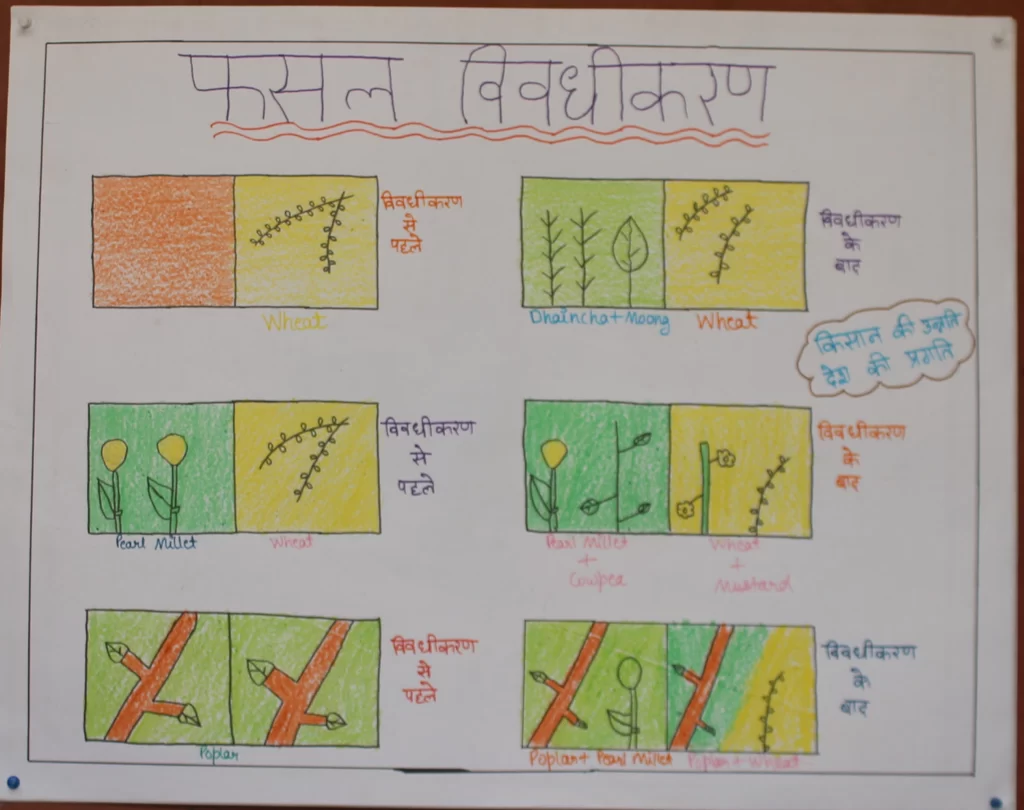 फसल विवधीकरण
विवधीकरण
से
पहले
Wheat
विवधीकरण
के
बाद
Dhaincha+Moong Wheat
किसान की उन्नति
देश की प्रगति
विवधीकरण
से
पहले
Pearl Millet Wheat
विवधीकरण
के
बाद
Pearl Millet
+
Cowpea
Wheat
+
Mustard
विवधीकरण
से
पहले
Poplar
विवधीकरण
के
बाद
Poplar+ Pearl Millet Poplar+Wheat